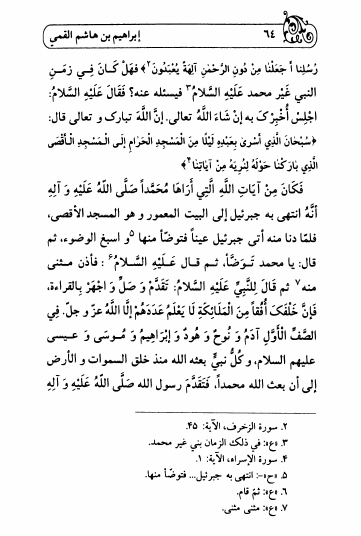 ٦٤ ابراهيم بن هاشم القمي
رُسُلِنا أ جَعَلْنا مِنْ دُونِ الرَّحْمٰنِ آلِهَةً يُعْبَدُونَ ٢﴾ فَهَلْ كَـانَ فِـي زَمَـنِ
النبي غَيْر محمد عَلَيْهِ السَّلَامُ ٣ فيسئله عنه؟ فَقَالَ عَلَيْهِ السَّلَامُ:
اجْلِسْ أُخْبِرْكَ بِهِ إِنْ شَاءَ اللَّهُ تعالى. إنَّ اللَّهَ تبارک و تعالى قال:
﴿سُبْحَانَ الَّذِي أَسْرَىٰ بِعَبْدِهِ لَيْلًا مِنَ الْمَسْجِدِ الْحَرَامِ إِلَى الْمَسْجِدِ الْأَقْصَى
الَّذِي بَارَكْنا حَوْلَهُ لِنُرِيَهُ مِنْ آيَاتِنَا ٤﴾
فَكَانَ مِنْ آيَاتِ اللَّهِ الَّتِي أَرَاهَا مُحَمَّداً صَلَّى اللَّهُ عَلَيْهِ وَ آلِهِ
أنَّهُ انتهى به جبرئيل إلى البيت المعمور و هو المسجد الأقصى،
فلمّا دنا منه أتى جبرئيل عيناً فتوضّأ منها ٥ و اسبغ الوضوء، ثم
قال: يا محمد تَـوَضَّأ، ثـم قـال عَـلَيْهِ السَّـلَامُ ٦ : فأذن مـثنى
منه ٧ ثم قَالَ لِلنَّبِيِّ عَلَيْهِ السَّلَامُ: تَقَدَّمْ وَ صَلِّ وَ اجْهَرْ بِالقراءة،
فَإِنَّ خَلْفَكَ أُفُقاً مِنَ الْمَلَائِكَةِ لَا يَعْلَمُ عَدَدَهُمْ إلَّا اللَّهُ عزّ و جلّ. فِي
الصَّفِّ الْأَوَّلِ آدَمُ وَ نُوحٌ وَ هُودٌ وَ إِبْرَاهِيمُ وَ مُوسَى وَ عـيسى
عليهم السلام، و كُلُّ نبيٍّ بعثه الله منذ خلق السموات و الأرض
إلى أن بعث الله محمداً، فَتَقَدَّمَ رسول الله صَلَّى اللَّهُ عَلَيْهِ وَ آلِهِ
٢. سورة الزخرف، الآية: ٤٥.
٣. «ع»: في ذلك الزمان بني غير محمد.
٤. سورة الإسراء، الآية: ١.
٥. «ح»-: انتهى به جبرئيل... فتوضّأ منها.
٦. «ع»: ثمّ قام.
٧. «ع»: مثنى مثنى.